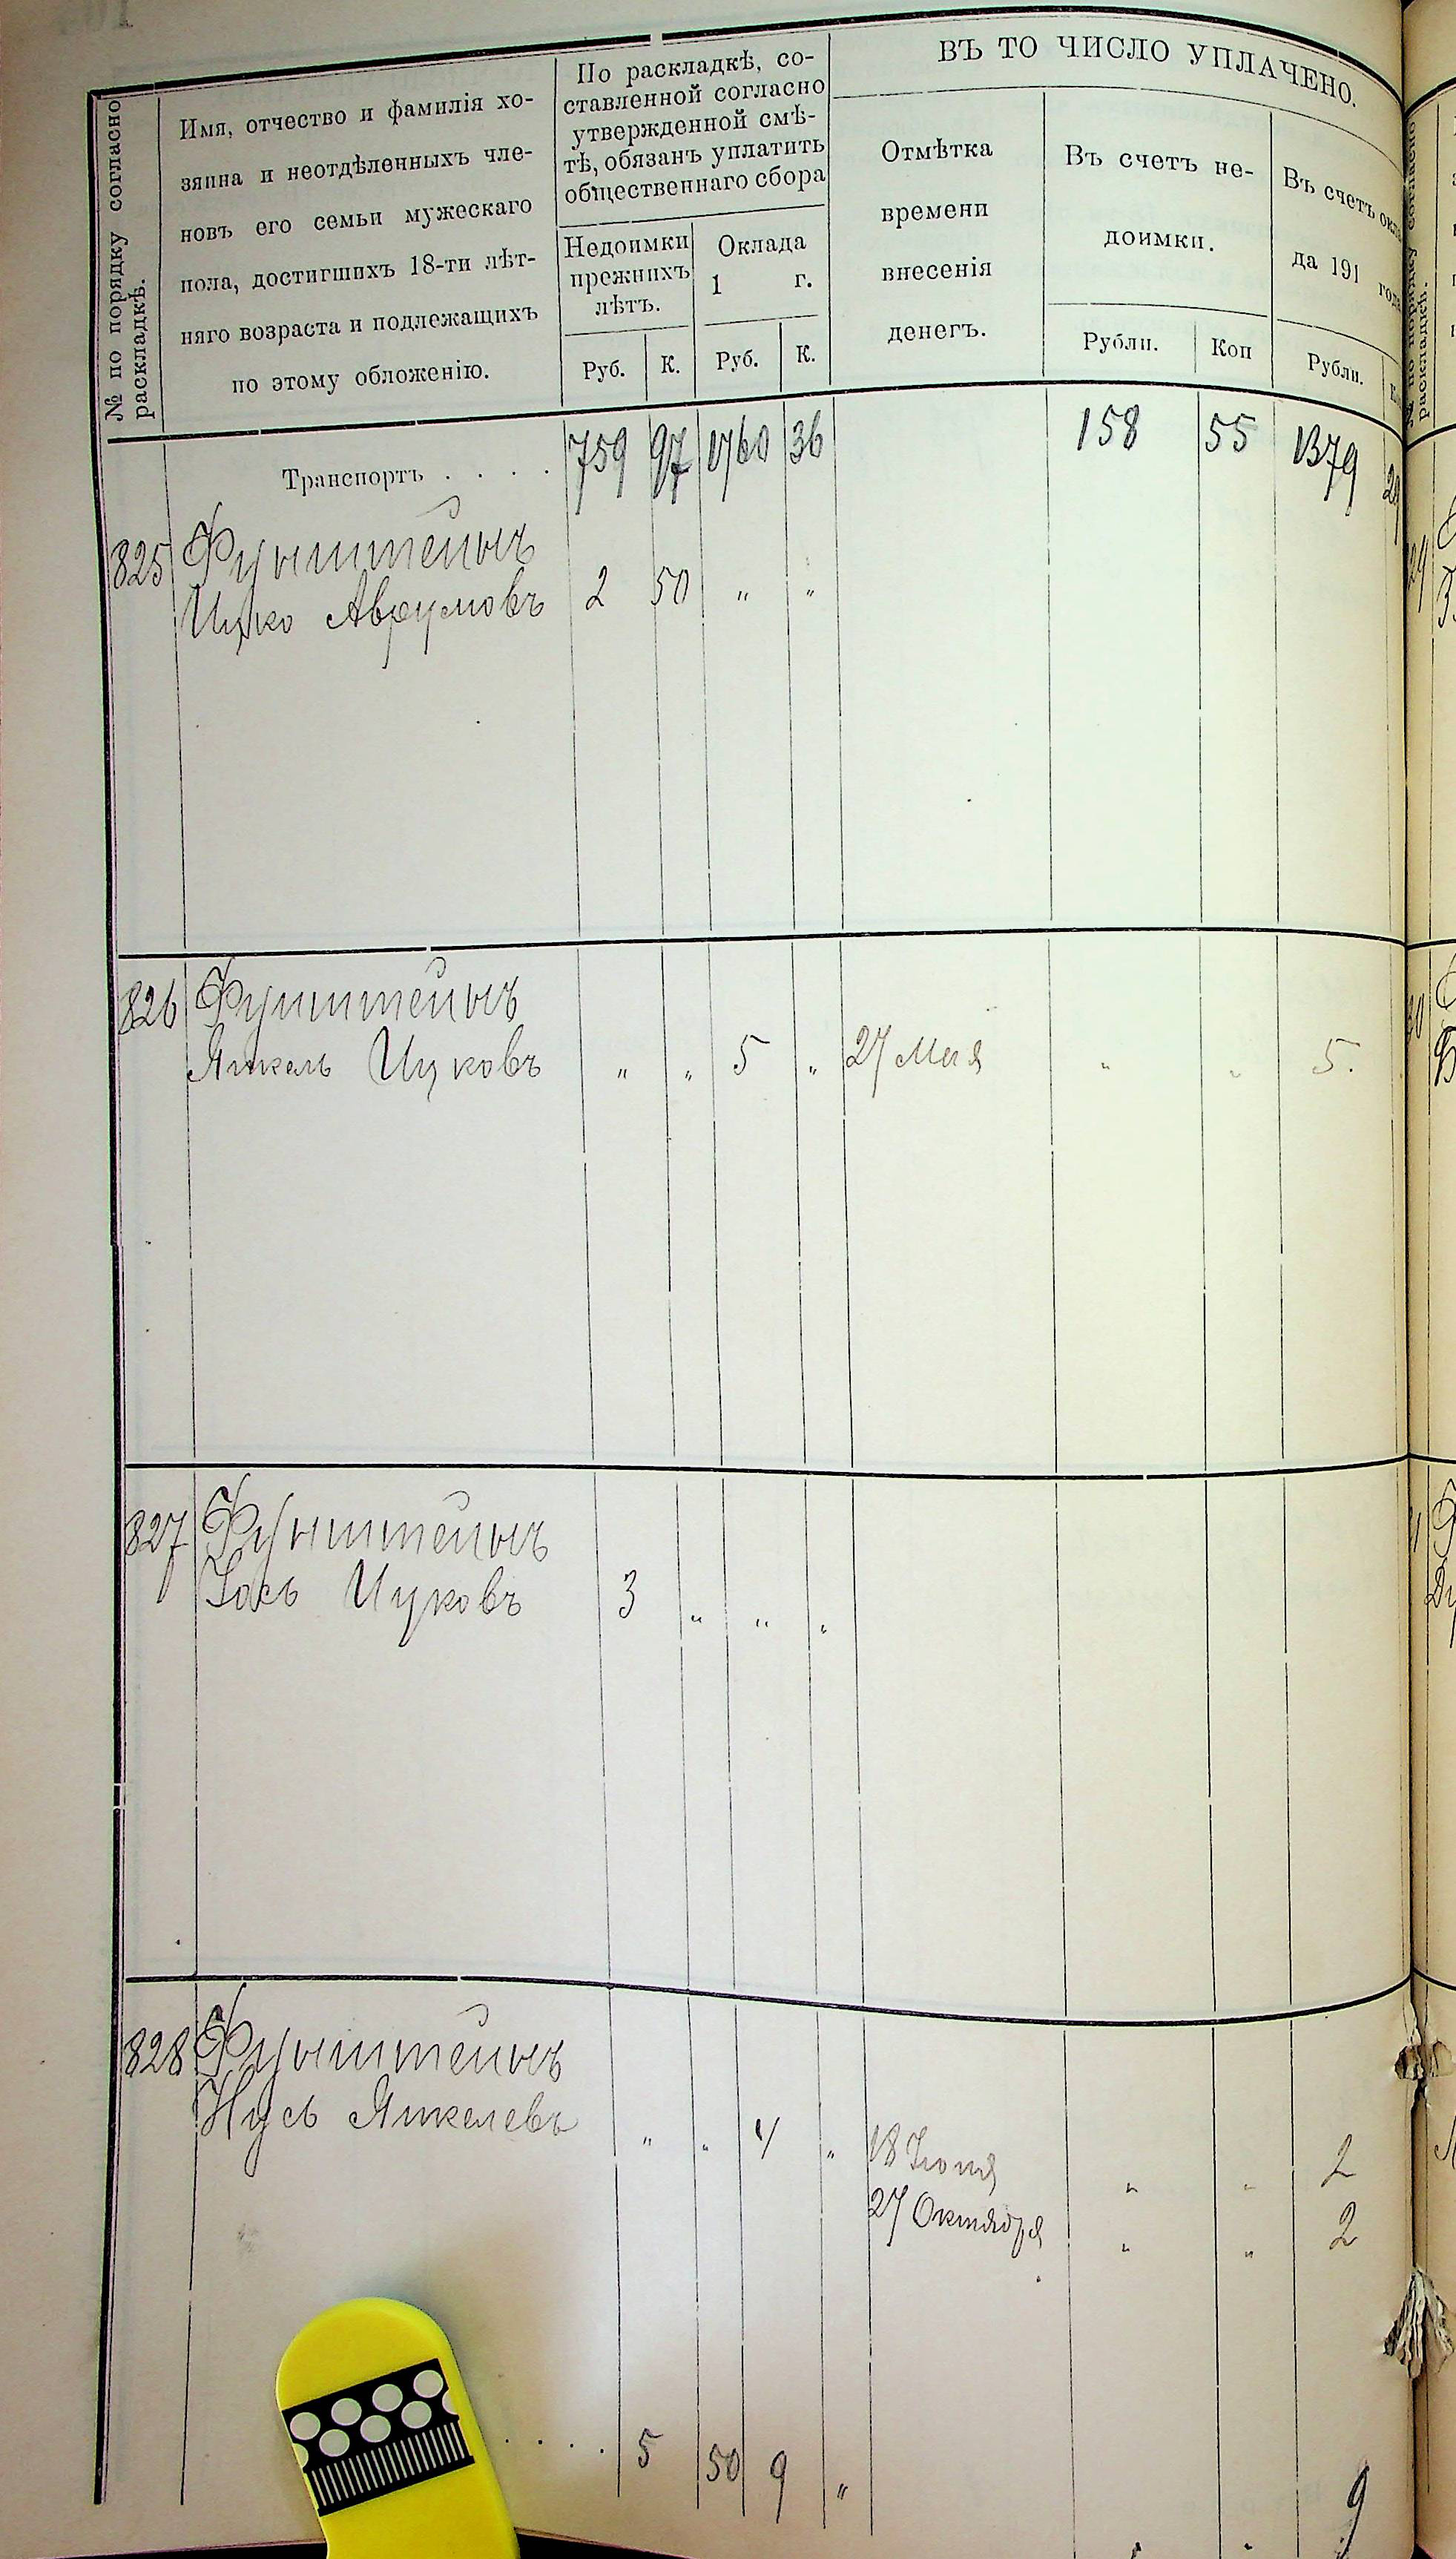 № по порядку согласно
раскладкѣ.
Имя, отчество и фамилія хо-
зяина и неотдѣленныхъ чле-
новъ его семьи мужескаго
пола, достигшихъ 18-ти лѣт-
няго возраста и подлежащихъ
по этому обложенію.
По раскладкѣ, со-
ставленной согласно
утвержденной смѣ-
тѣ, обязанъ уплатить
общественнаго сбора
Недоимки
прежнихъ
лѣтъ.
Оклада
1 г.
Руб. К. Руб. К.
ВЪ ТО ЧИСЛО УПЛАЧЕНО.
Отмѣтка
времени
внесенія
денегъ.
Въ счетъ не-
доимки.
Рубли. Коп
Въ счетъ окла
да 191 года
Рубли.
Транспортъ . . . . 759 97 1760 36 158 55 1379
825 Фунштейнъ
Ицко Аврумовъ 2 50 „ „
826 Фунштейнъ
Янкель Ицковъ „ „ 5 „ 27 Мая „ „ 5.
827 Фунштейнъ
Іось Ицковъ 3 „ „ „
828 Фунштейнъ
Нусь Янкелевъ „ „ 4 „ 18 Іюня „ „ 2
27 Октября „ „ 2
. . . . 5 50 9 „ „ „ 9